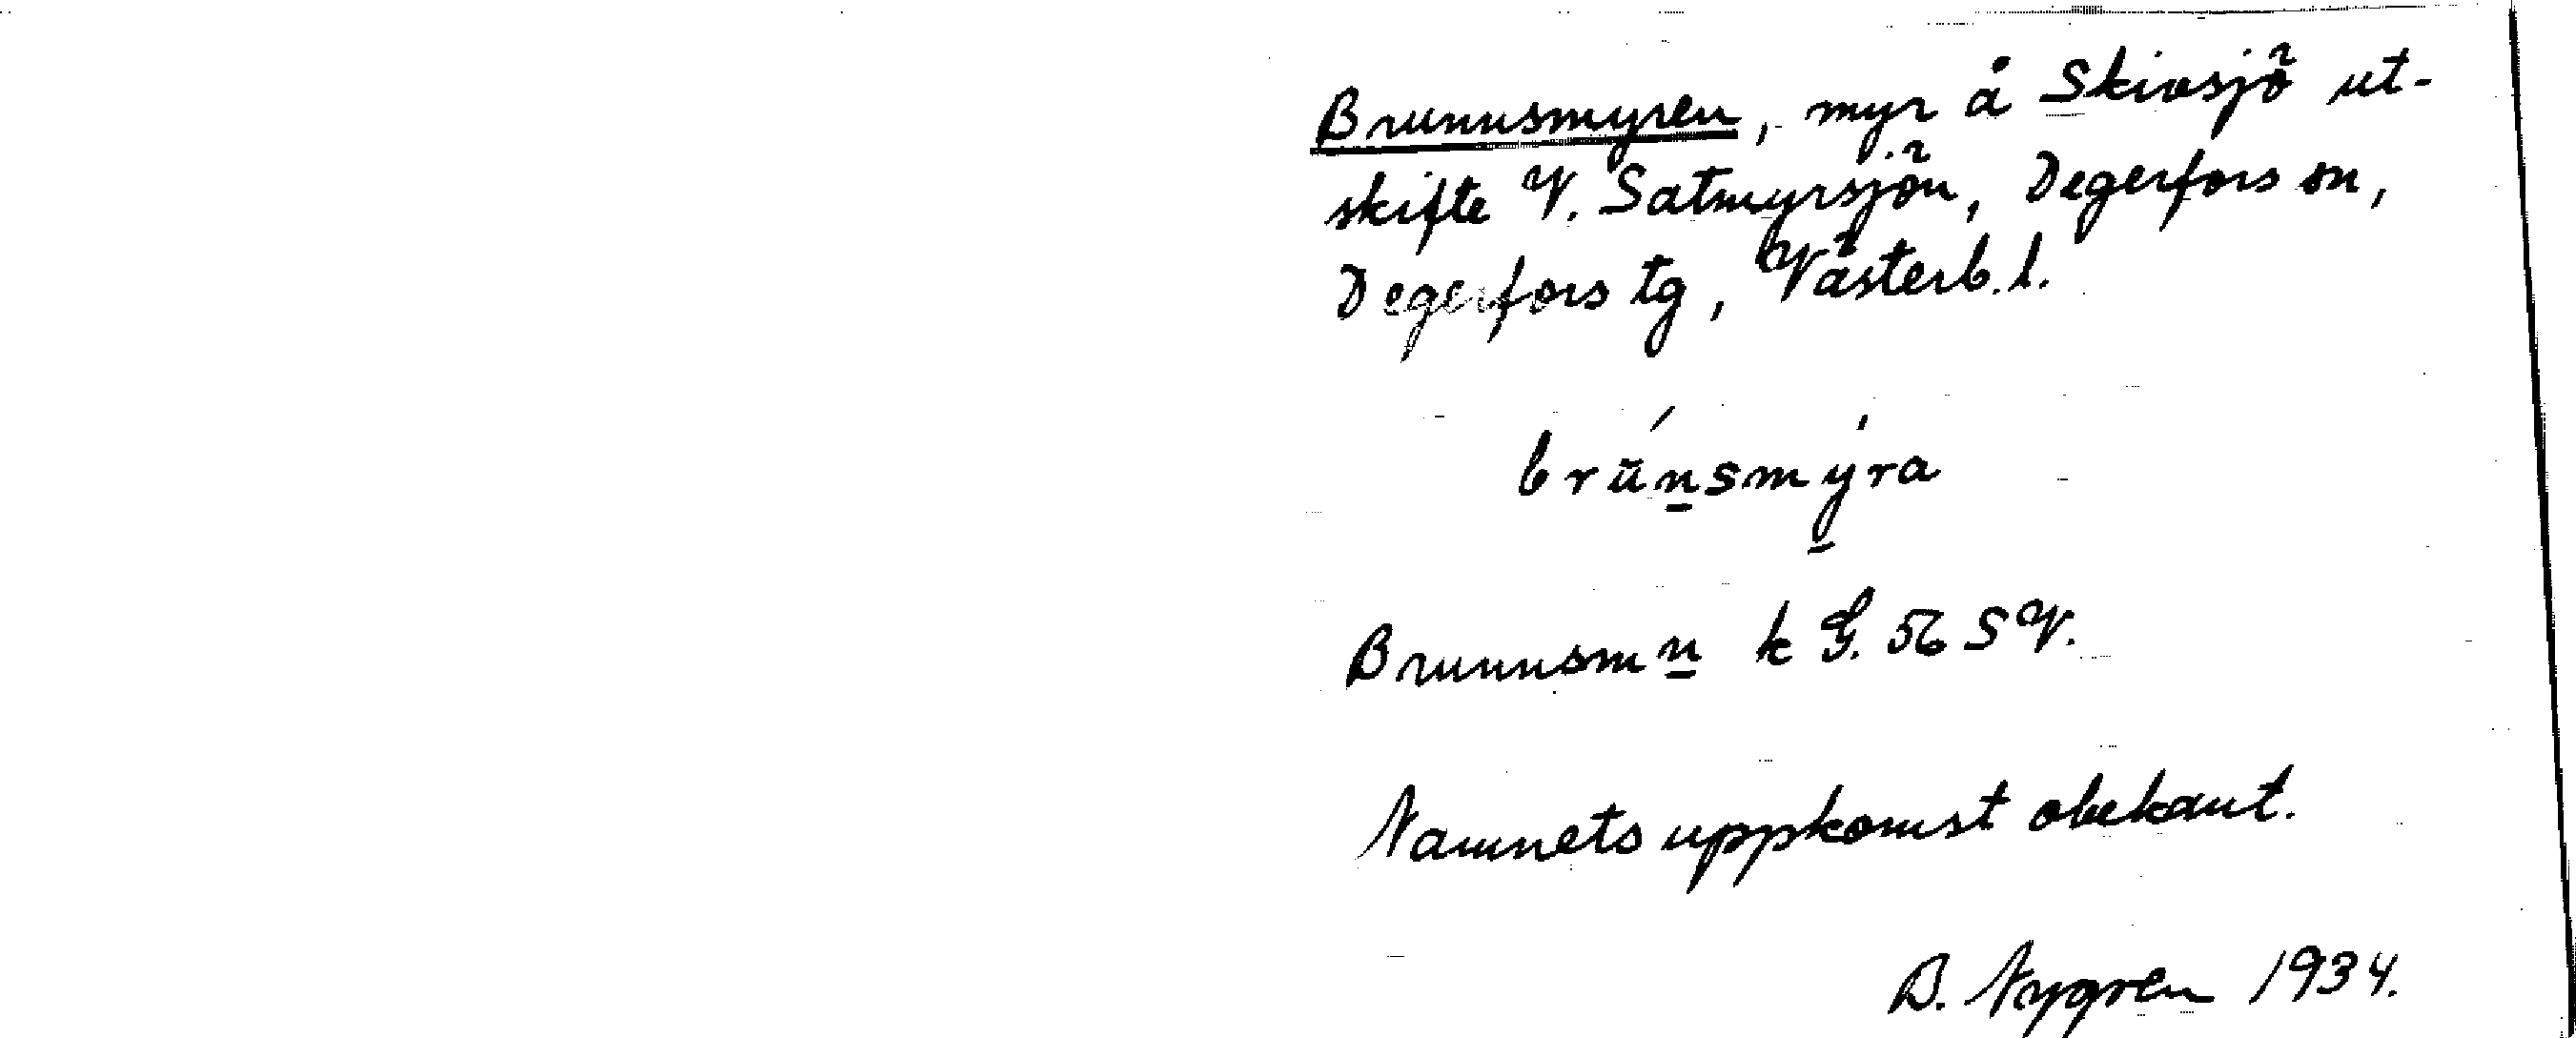 Brunnsmyren, myr å Skivsjö ut-
skifte V. Satmyrsjön, Degerfors sn,
Degerfors tg, Västerb. l.
brŭn̲smy̲ra
Brunnsmn̲ k G. 56 SV.
Namnets uppkomst obekant.
B. Nygren 1934.